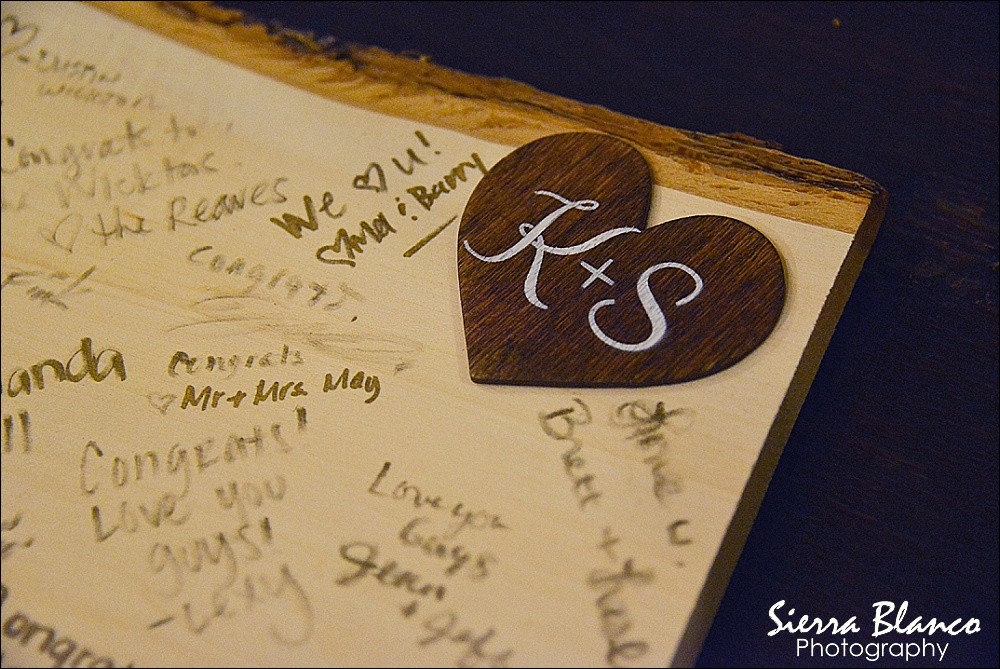 WICKTON
Congrats to
Wicktons.
♡ the Reaves
We ♡ U!
♡ Mel & Barry
Congrats!
K + S
anda
ll
Congrats
♡ Mr + Mrs May
Congrats!
Love you
guys!
- Lexy
Love you
Guys
Jenn
+ Jeff
Brett +
Congrat
Sierra Blanco
Photography